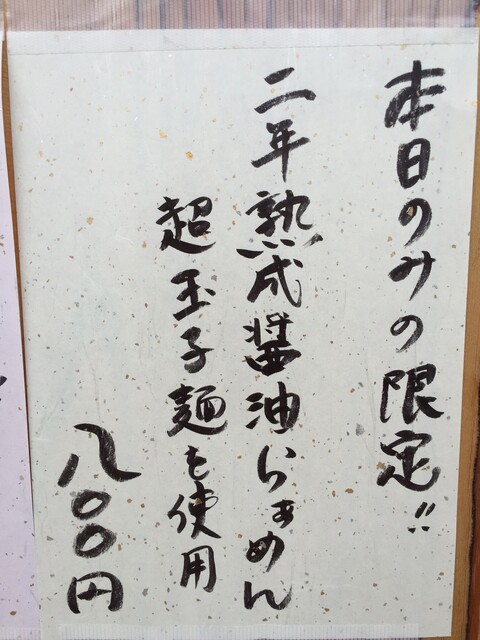 本日のみの限定!!
二年熟成醤油らぁめん
超玉子麺を使用
八〇〇円